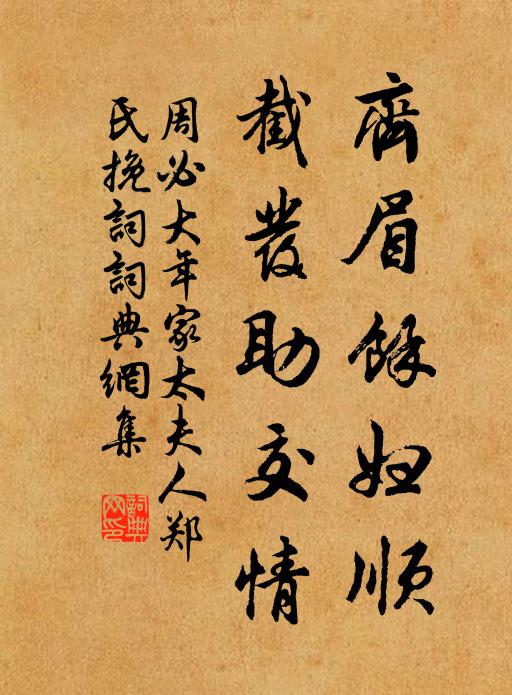 齊眉餘妇順
截發助交情
周必大年家太夫人郑
民挽詞詞典網集
詞典網印